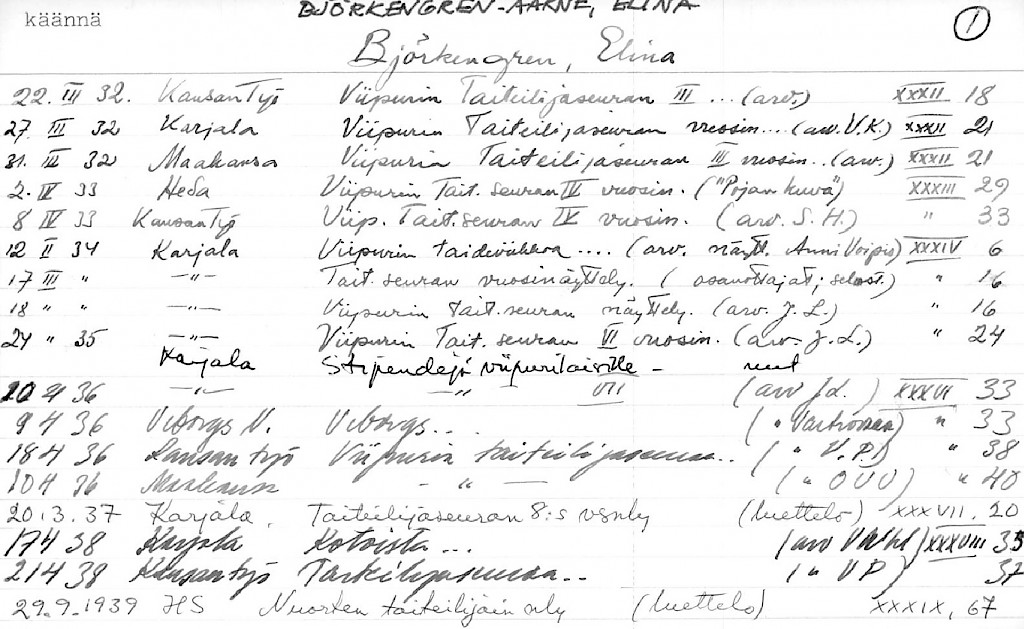 käännä
BJÖRKENGREN-AARNE, ELINA
1
Björkengren, Elina
22. III 32. KansanTyö Viipurin Taiteilijaseuran III ... (arv.) XXXII 18
27. III 32 Karjala Viipurin Taiteilijaseuran vuosin.... (arv. V.K.) XXXII 21
31. III 32 Maakansa Viipurin Taiteilijaseuran III vuosin... (arv.) XXXII 21
2. IV 33 Viipurin Tait. seuran IV vuosin. ("Pojan kuva") XXXIII 29
8 IV 33 KansanTyö Viip. Tait. seuran IV vuosin. (arv. S. H.) " 33
12 II 34 Karjala Viipurin taideväkkoa .... (arv. näytt. Anni Voipio) XXXIV 6
17 III " -"- Tait. seuran vuosinäyttely. (osanottajat; selost.) " 16
18 " " -"- Viipurin tait. seuran näyttely. (arv. J. L.) " 16
24 " 35 -"- Viipurin Tait. seuran VI vuosin. (arv. J. L.) " 24
Karjala Stipendejä viipurilaisille - uut
36 -"- -"- VII (arv J.L. ) XXXVI 33
9 4 36 Viborgs N. Viborgs... ( " ) " 33
18 4 36 Kansan työ Viipurin taiteilijaseuran.. ( " V.P.) " 38
10 4 36 Maakansa - " - ( " OVV) " 40
20.3.37 Karjala. Taiteilijaseuran 8:s vsnly (luettelo) XXXVII, 20
17 4 38 Karjala Kotoista ... (arv ) XXXVIII 35
21 4 38 Kansan työ Taiteilijaseuran.. ( " VP) 37
29.9.1939 HS Nuorten taiteilijain nly (luettelo) XXXIX, 67